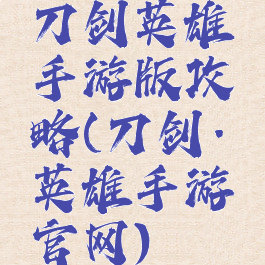 刀剑英雄
手游版攻
略(刀剑·
英雄手游
官网)